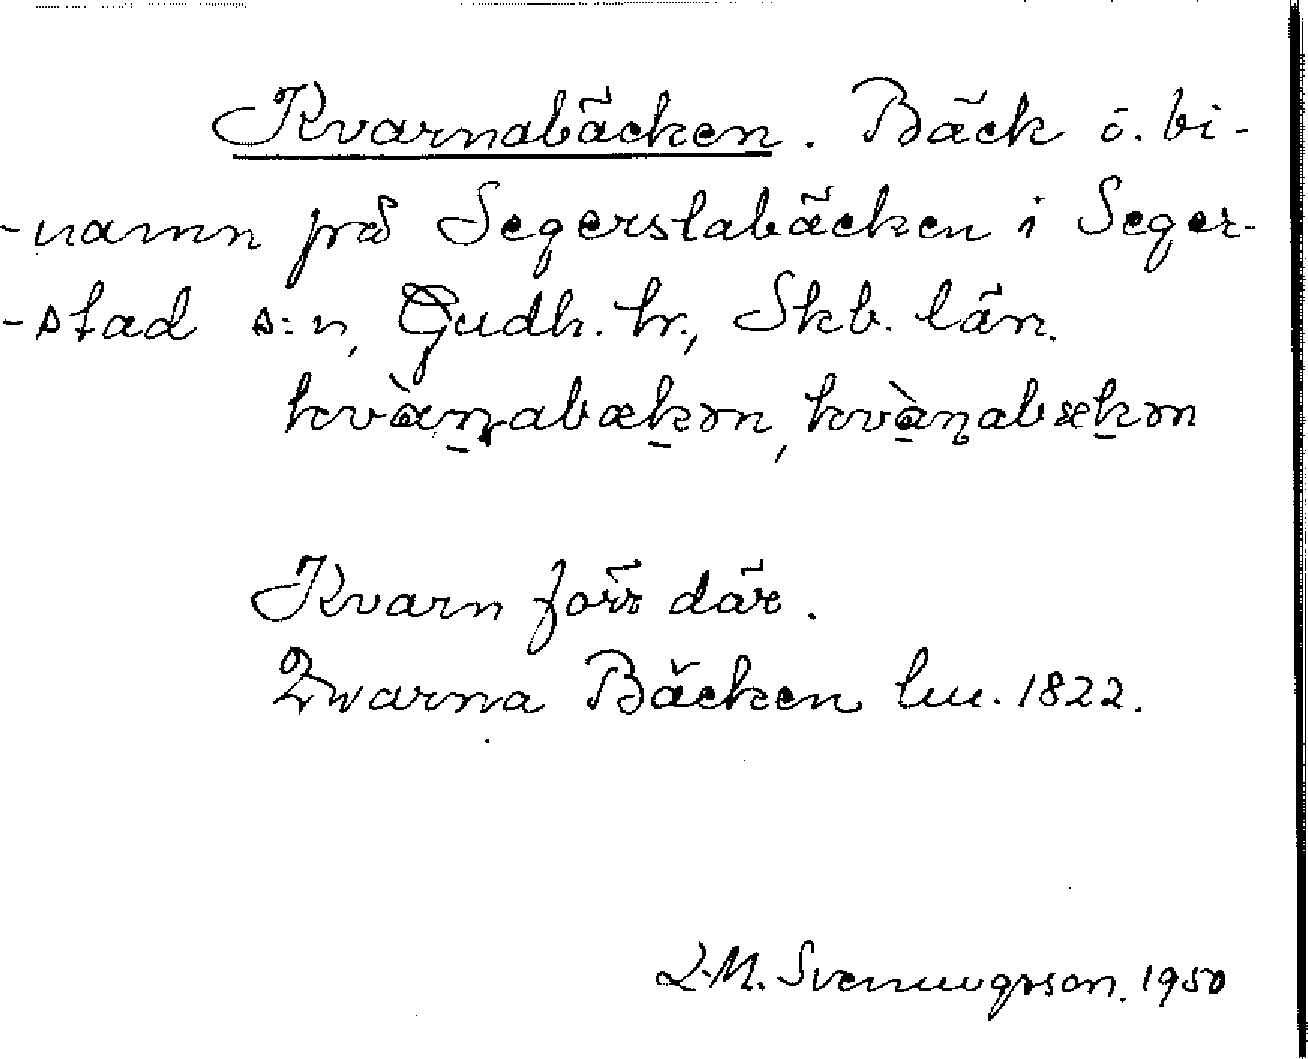 Kvarnabäcken. Bäck o. bi-
-namn på Segerstabäcken i Seger-
-stad s:n, Gudh. hr., Skb. län.
kvàṇabækən, kvàṇabækən
Kvarn förr där.
Qwarna Bäcken lm. 1822.
L.M. Svenungsson. 1950